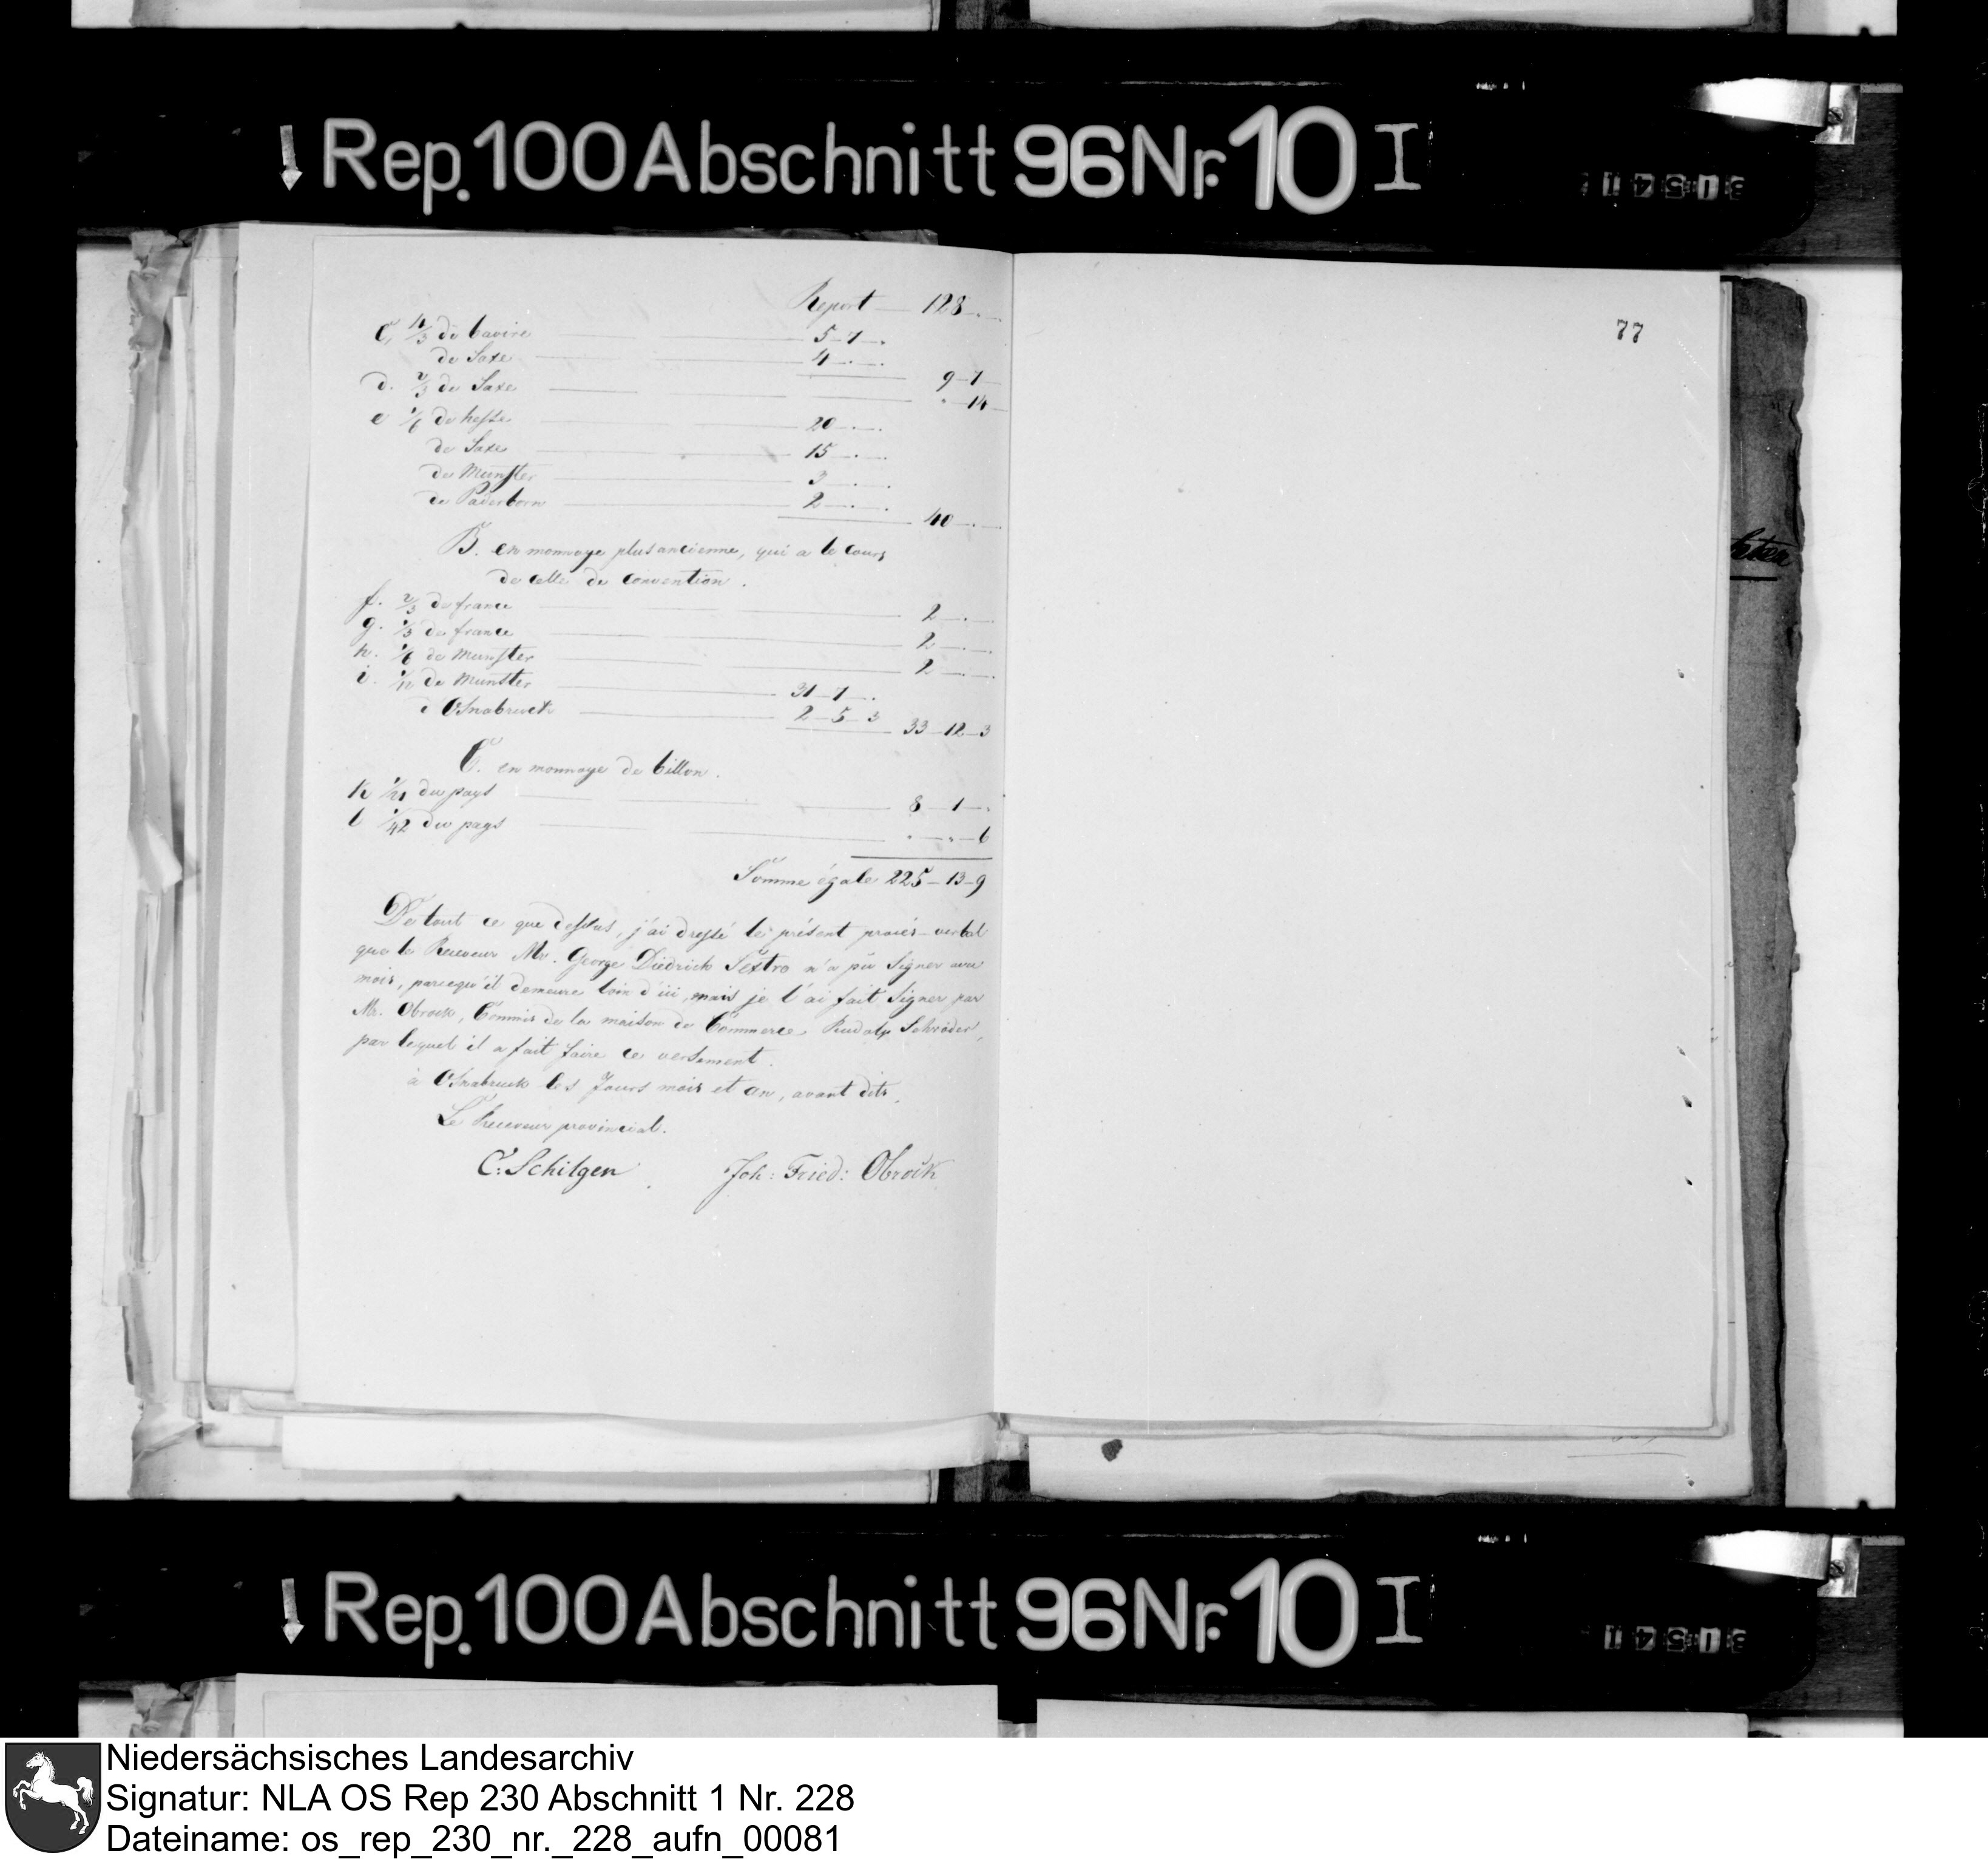 Rep. 100 Abschnitt 96 Nr. 10 I
Report — 128 — . —
C, 4/3 de bavire — 5 — 7 — .
de Saxe — 4 — . — .
9 — 7 —
d. 2/3 de Saxe — . — 14 —
e 1/6 de hesse — 20 — . — .
de Saxe — 15 — . — .
de Munster — 3 — . — .
de Paderborn — 2 — . — .
40 — . —
B. en monnoye plus ancienne, qui a le cours
de celle de convention.
f. 2/3 de france — 2 — . —
g. 1/3 de france — 2 — . —
h. 1/6 de Munster — 2 — . —
i. 1/12 de Munster — 31 — 7 — .
d'Osnabruck — 2 — 5 — 3
33 — 12 — 3
C. en monnoye de billon.
K 1/21 du pays — 8 — 1 — .
l 1/42 du pays — . — . — 6
Somme égale 225 — 13 — 9
De tout ce que dessus, j'ai dressé le présent procès-verbal
que le Receveur Mr. George Diedrich Sextro n'a pû signer avec
moi, parcequ'il demeure loin d'ici, mais je l'ai fait signer par
Mr. Obrock, Commis de la maison de Commerce Rudolp Schröder,
par lequel il a fait faire ce versement.
à Osnabruck les Jours mois et an, avant dits.
Le Receveur provincial.
C. Schilgen Joh: Fried: Obrock
77
Rep. 100 Abschnitt 96 Nr. 10 I
Niedersächsisches Landesarchiv
Signatur: NLA OS Rep 230 Abschnitt 1 Nr. 228
Dateiname: os_rep_230_nr._228_aufn_00081